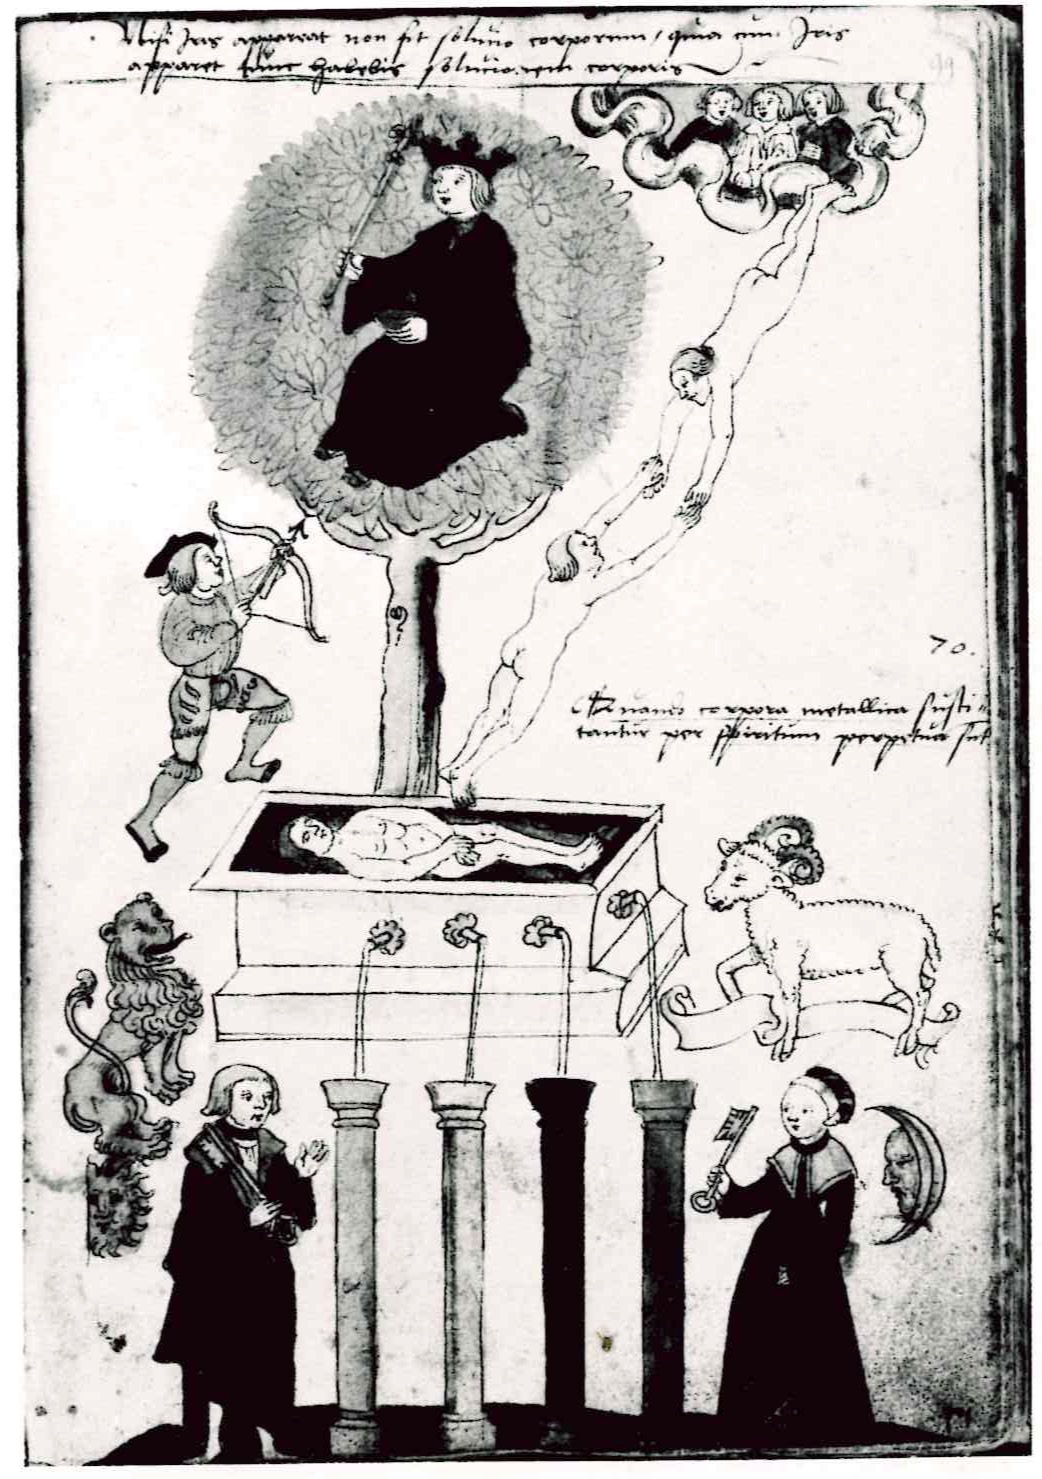 Nisi Iris appareat non fit soluuio corporum, quia cum Iris
apparet tunc habebis soluuionem corporis
99
70.
Quando corpora metallica susti=
tantur per spiritum perpetua sut